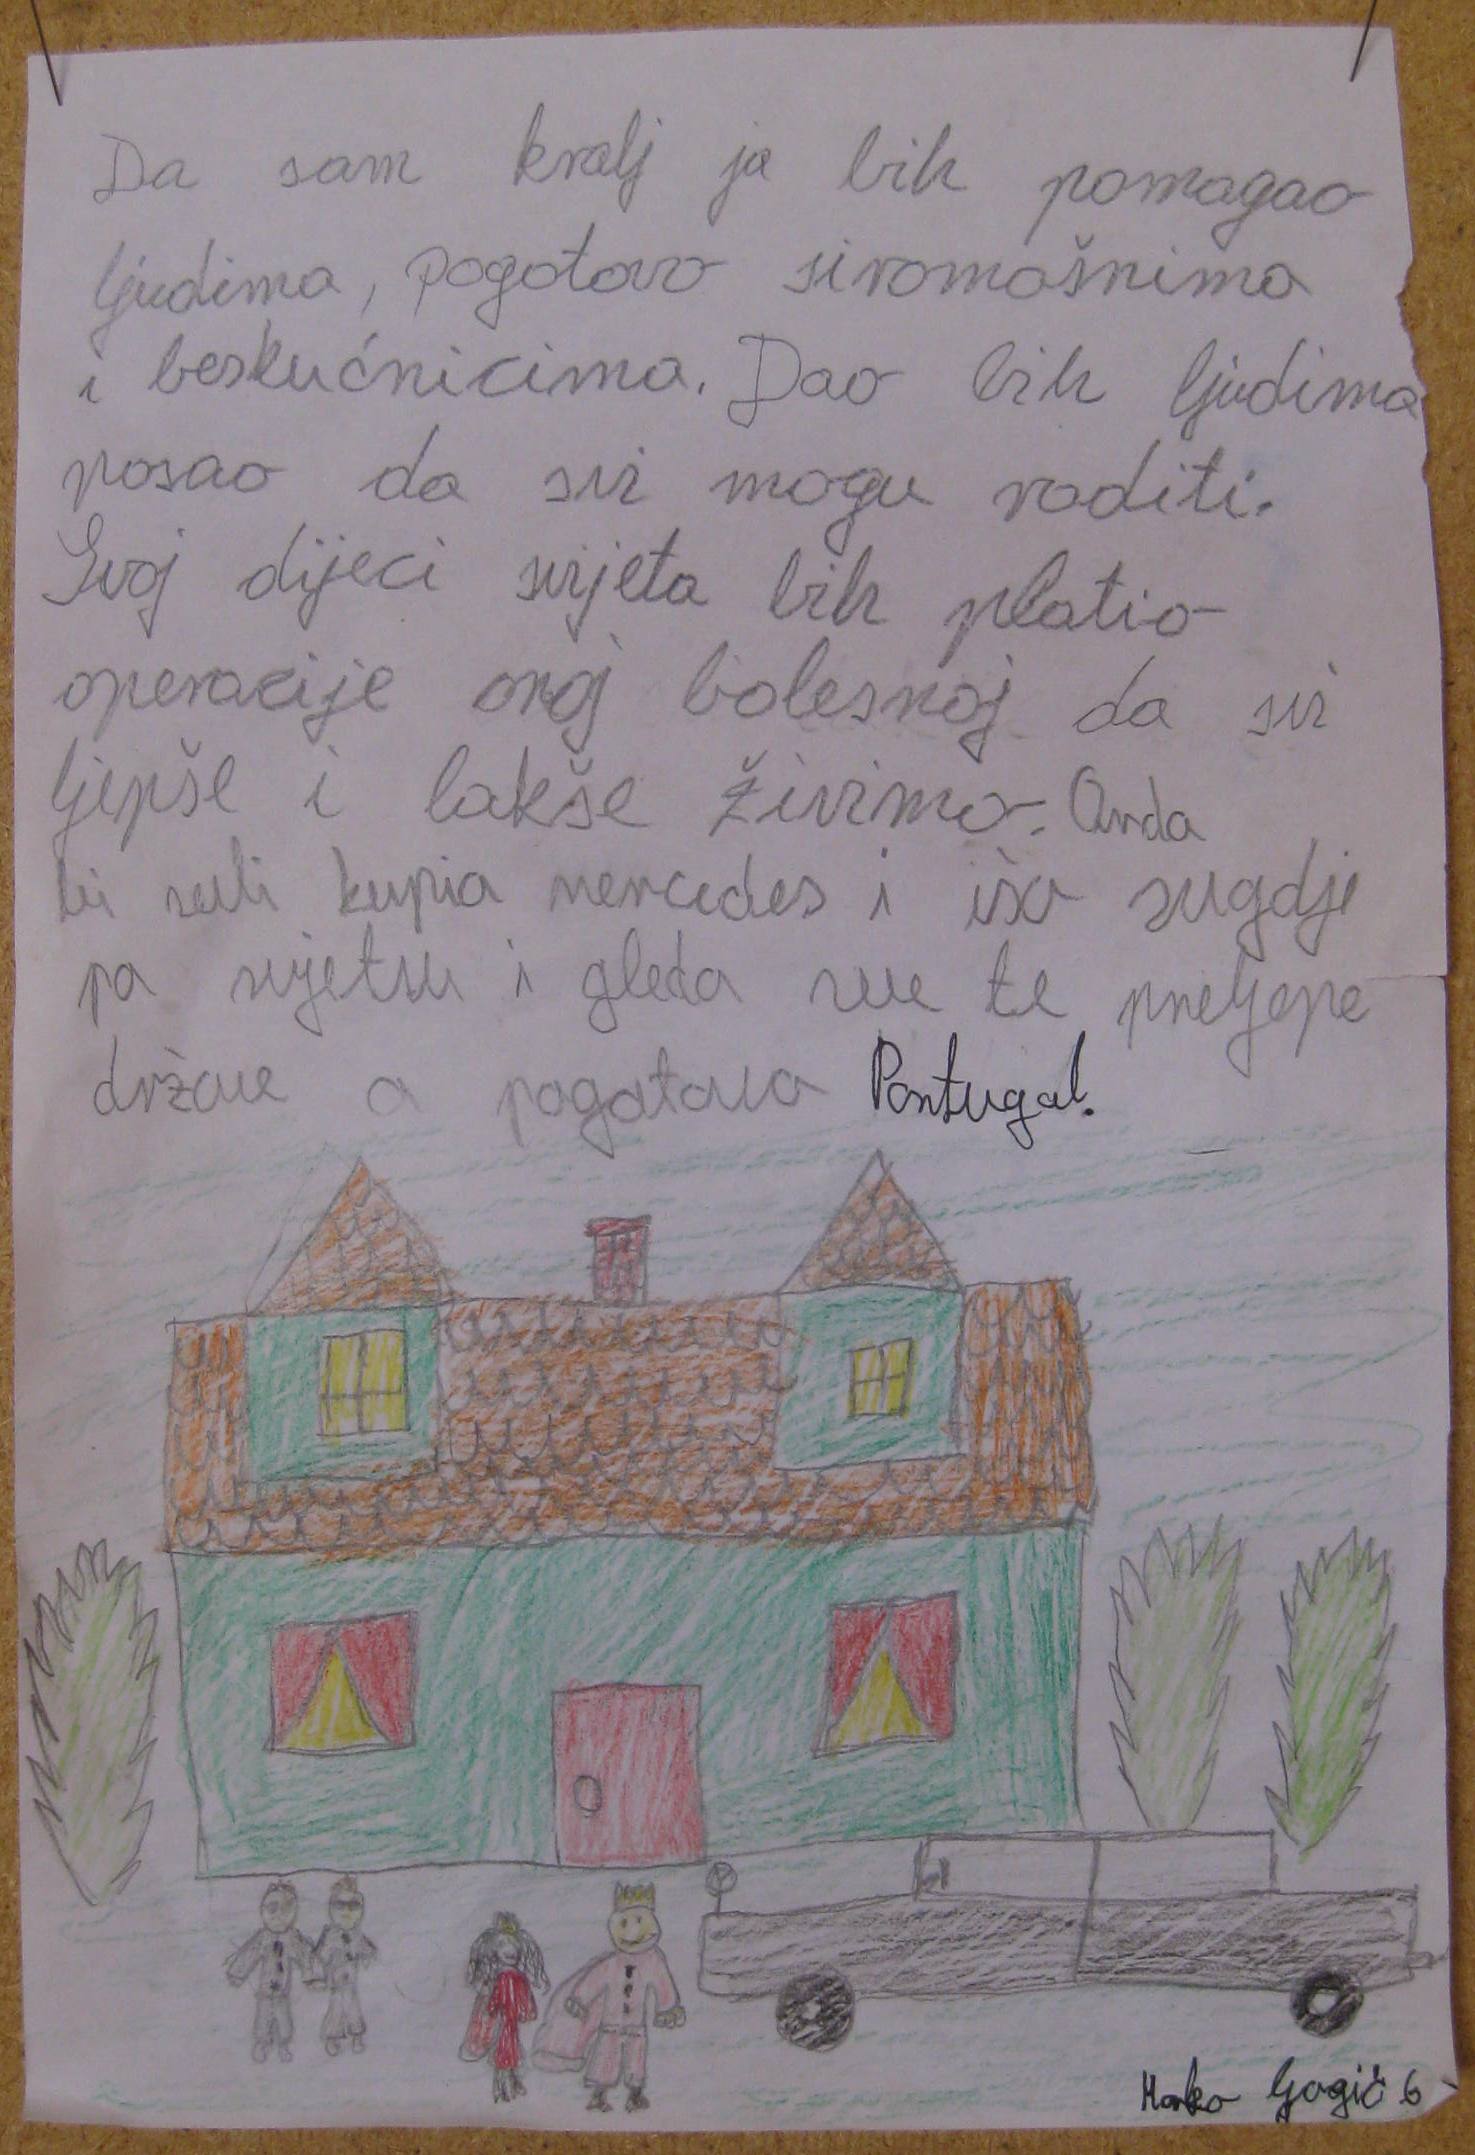 Da sam kralj ja bih pomagao
ljudima, pogotovo siromašnima
i beskućnicima. Dao bih ljudima
posao da svi mogu raditi.
Svoj dijeci svijeta bih platio
operacije onoj bolesnoj da svi
ljepše i lakše živimo. Onda
bi sebi kupia mercedes i iša svugdje
pa svijetu i gleda sve te preljepe
države a pogotovo Portugal.
Marko Gogić 6